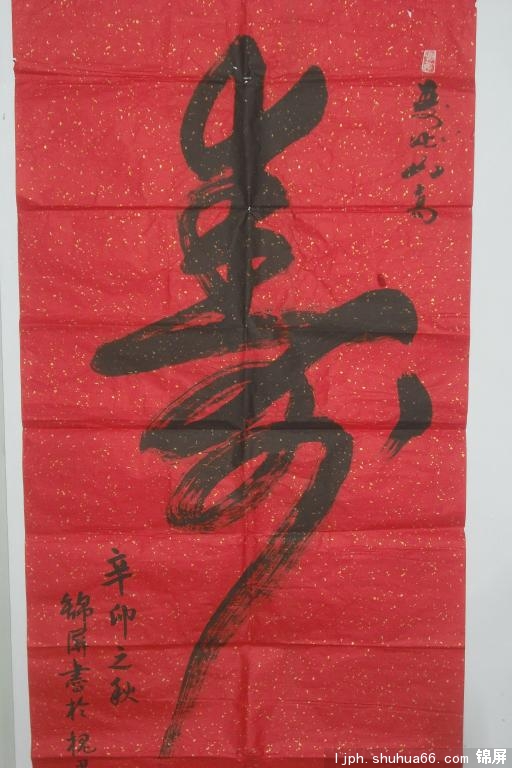 寿比山高
寿
辛卯之秋
锦屏書於槐
ljph.shuhua66.com 锦屏